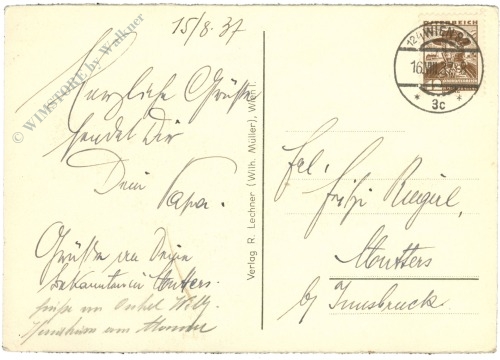 © WIMSTORE by Walkner
15/8. 37
Herzliche Grüße
sendet Dir
Dein Papa.
Grüße von Deiner
Bekannten in Mutters.
Grüße von Onkel Willy
Verlag R. Lechner (Wilh. Müller), Wien I.
ÖSTERREICH
WIEN
16.VIII.37
* 3c *
Frl.
Fritzi Riegel,
Mutters
by Innsbruck